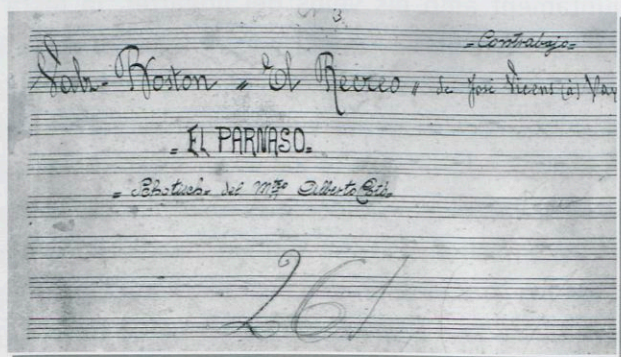 Nº 3.
=Contrabajo=
Vals-Boston "El Recreo" de José Vicens (a) Vay
= EL PARNASO. =
= Schotisch = del Mtro Alberto Cotó =
261